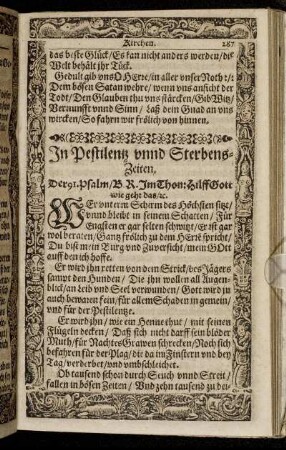 Kirchen. 287
das beste Glück/ Es kan nicht anders werden/ die
Welt behält jhr Tück.
Gedult gib vns O HErre/ in aller vnser Noth :/:
Dem bösen Satan wehre/ wenn vns ansicht der
Todt/ Den Glauben thu vns stärcken/ Gib Witz/
Vernunfft vnnd Sinn/ laß dein Gnad an vns
wircken/ So fahren wir frölich von hinnen.
In Pestilentz vnnd Sterbens-
Zeiten.
Der 91. Psalm/ B. R. Im Thon: Hilff Gott
wie geht das/ ꝛc.
WEr vnterm Schirm des Höchsten sitzt/
vnnd bleibt in seinem Schatten/ Für
Engsten er gar selten schwitzt/ Er ist gar
wol beraten/ Gantz frölich zu dem HErrẽ spricht/
Du bist mein Burg vnd Zuversicht/ mein GOtt
auff den ich hoffe.
Er wird jhn retten von dem Strick/ des Jägers
sampt den Hunden/ Die jhn wollen all Augen-
blick/ an Leib vnd Seel verwunden/ Gott wird jn
auch bewaren fein/ für allem Schaden in gemein/
vnd für der Pestilentze.
Er wird jhn/ wie ein Henne thut/ mit seinen
Flügeln decken/ Daß sich nicht darff sein blöder
Muth/ für Nachtes Grawen schrecken/ Noch sich
befahren für der Plag/ die da im Finstern vnd bey
Tag/ verderbet/ vnd vmbschleichet.
Ob tausend schon durch Seuch vnnd Streit/
fallen in bösen Zeiten/ Vnd zehn tausend zu dei-